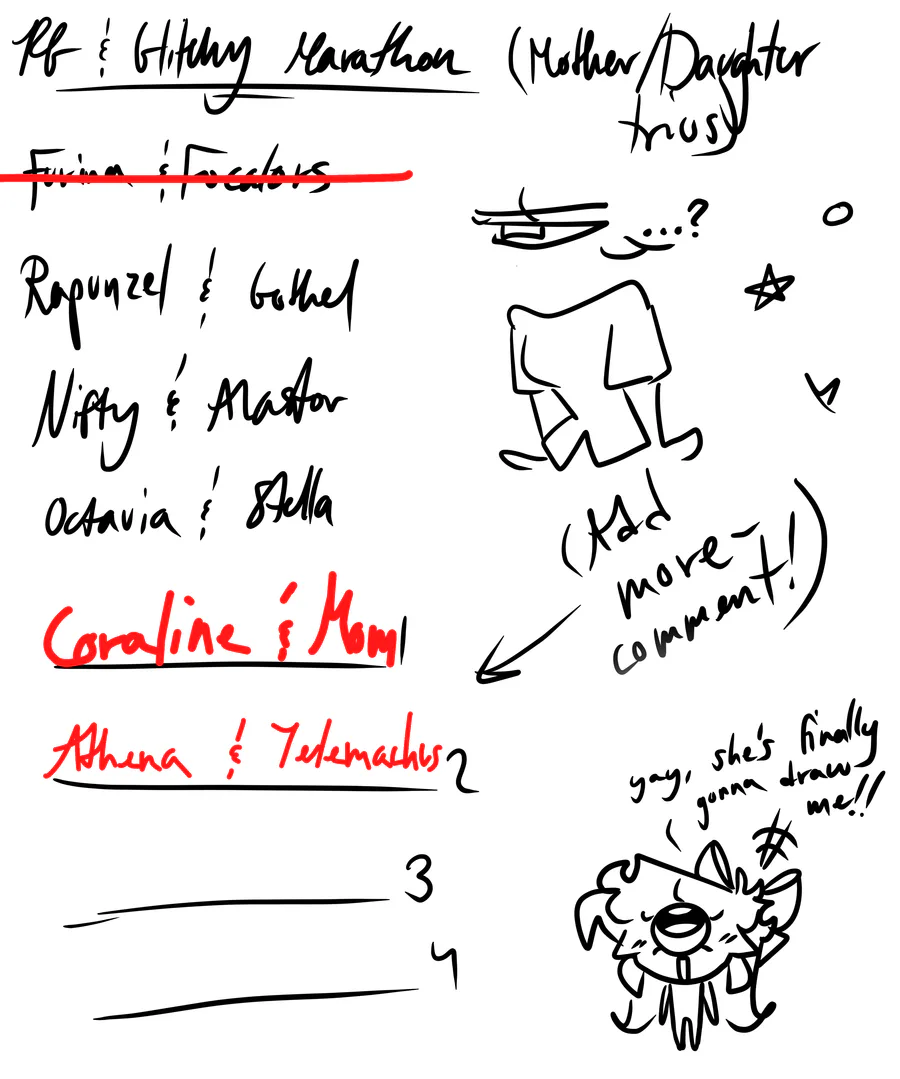 PG & Glitchy Marathon (Mother/Daughter
trust)
Furina & Focalors
...?
Rapunzel & Gothel
Nifty & Alastor
Octavia & Stella
(Add
more-
comment!)
Coraline & Mom 1
Athena & Telemachus 2
yay, she's finally
gonna draw
me!!
3
4